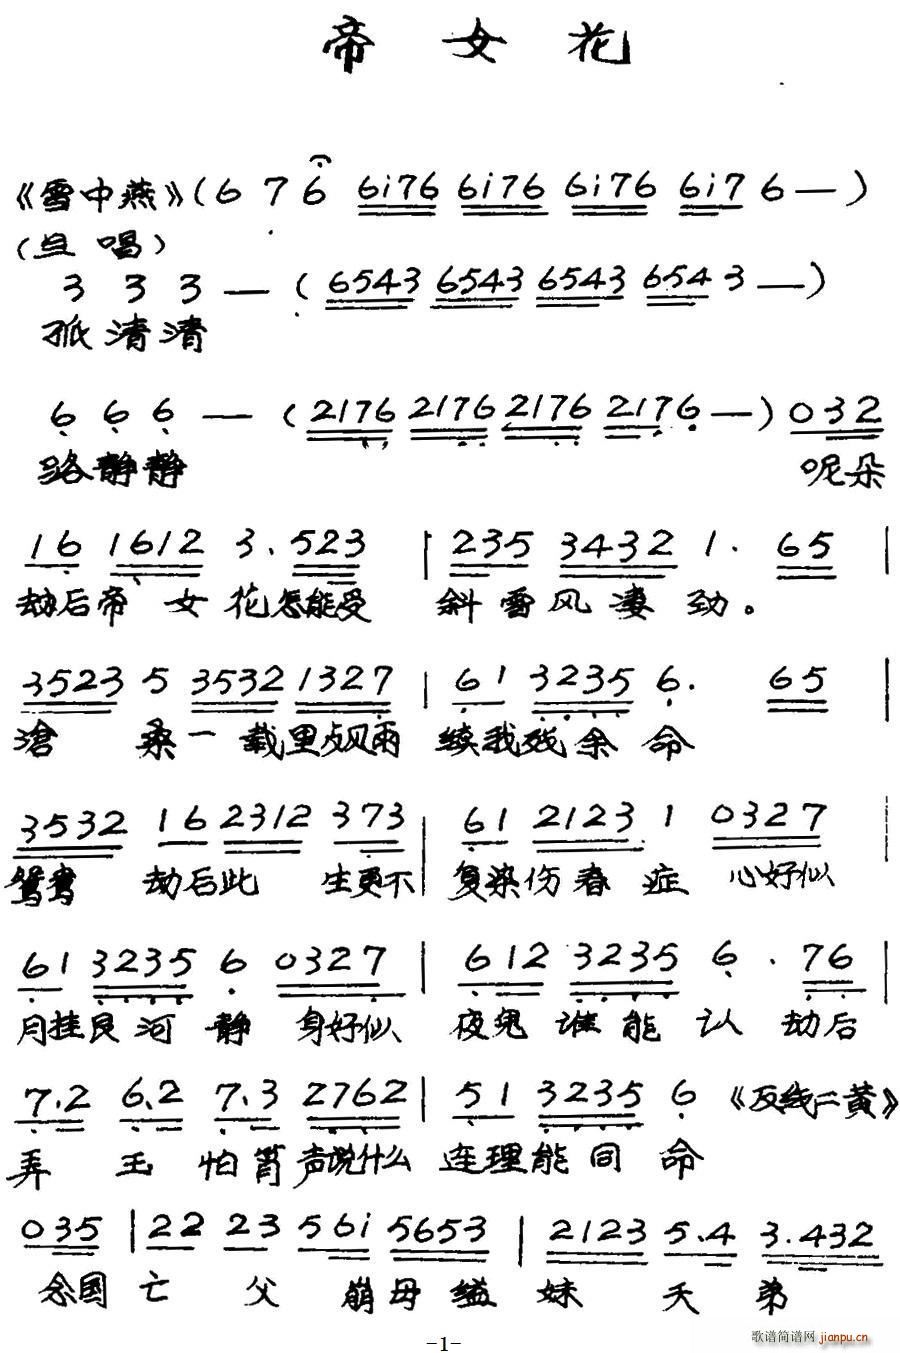 帝女花
《雪中燕》(6 7 6 6i76 6i76 6i76 6i7 6 —)
(旦唱)
3 3 3 — (6543 6543 6543 654 3 —)
孤清清
6 6 6 — (2176 2176 2176 217 6 —) 032
路静静 呢朵
16 1612 3. 523 | 235 3432 1. 65 |
劫后帝女花怎能受 斜雪风凄劲。
3523 5 3532 1327 | 61 3235 6. 65 |
沧桑一载里点风雨 续我残余命
3532 16 2312 373 | 61 2123 1 0327 |
鸳鸯劫后此生更不 复染伤春症 心好似
61 3235 6 0327 | 612 3235 6. 76 |
月挂良河静 身好似 夜鬼谁能认 劫后
7.2 6.2 7.3 2762 | 51 3235 6 《反线二黄》
弄玉怕箫声说什么 连理能同命
035 | 22 23 56i 5653 | 2123 5.4 3.432
念国亡父崩母缢妹夭弟
-1-
歌谱简谱网 jianpu.cn